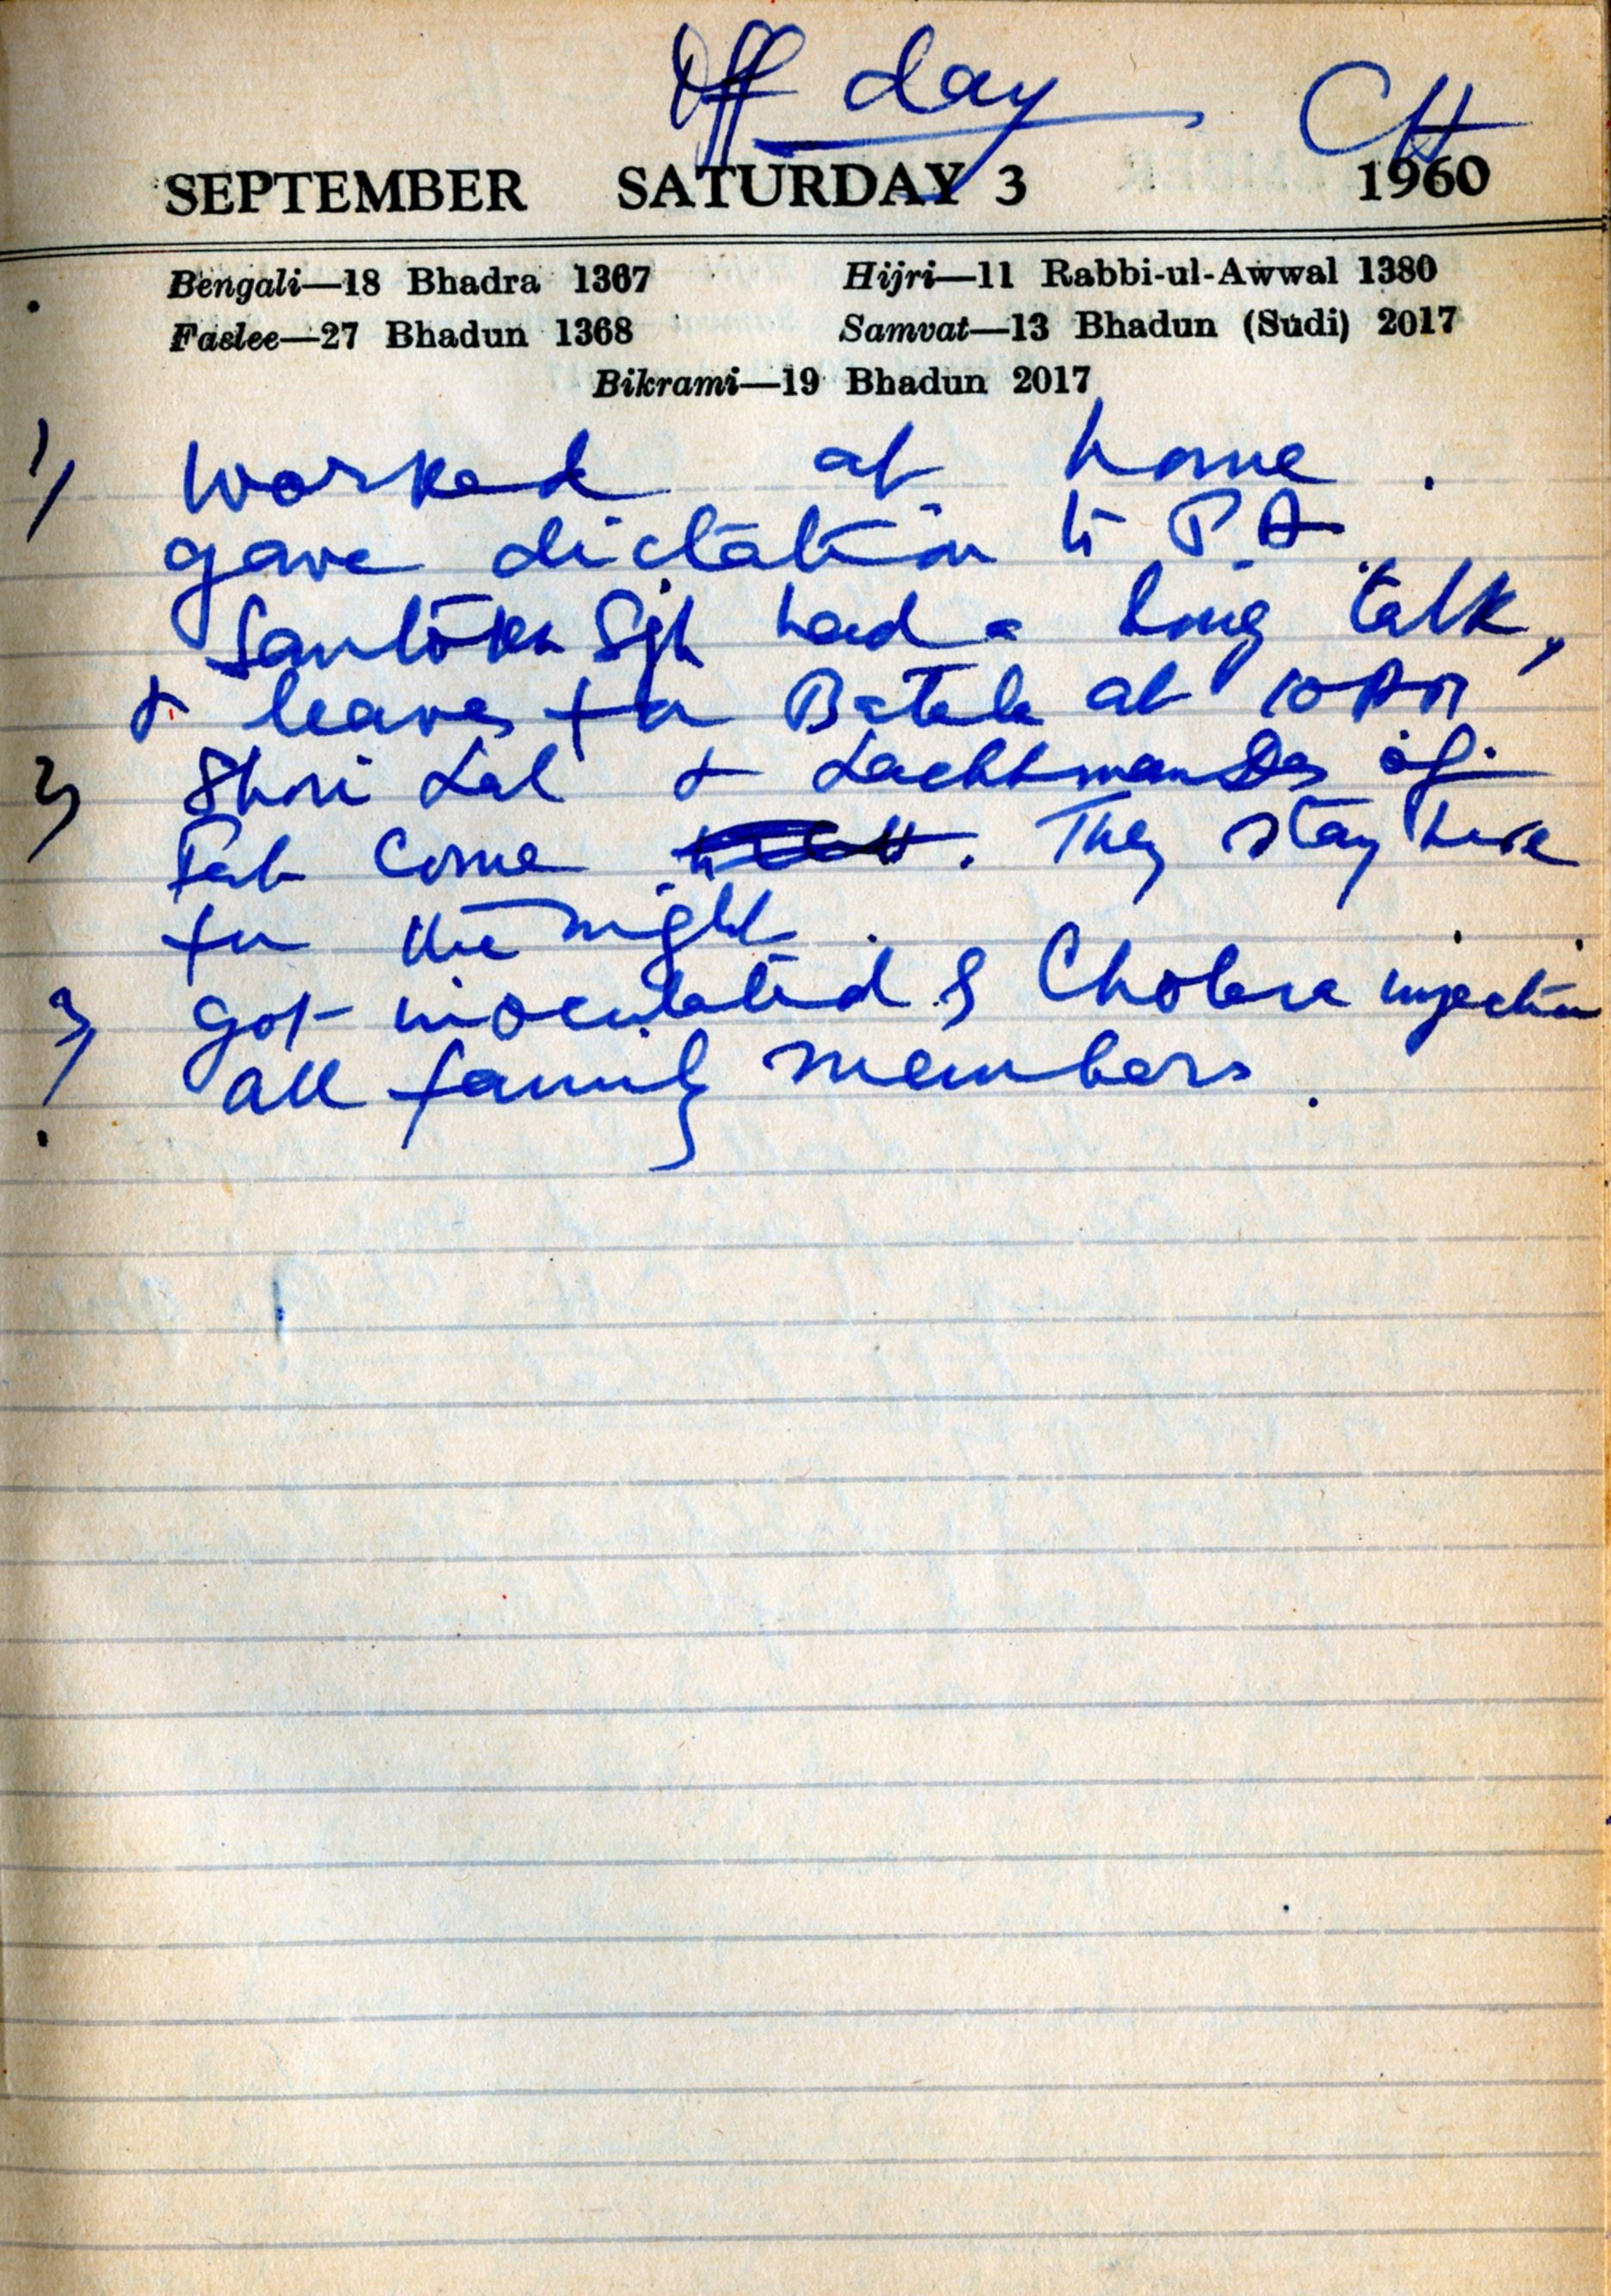 Off day CH
SEPTEMBER SATURDAY 3 1960
Bengali—18 Bhadra 1367 Hijri—11 Rabbi-ul-Awwal 1380
Faslee—27 Bhadun 1368 Samvat—13 Bhadun (Sudi) 2017
Bikrami—19 Bhadun 2017
1) Worked at home.
gave dictation to P.A.
Santokh Sgh had a long talk,
& leaves for Batala at 10 AM
2) Shri Lal & Lachhman Das of
come. They stay here
for the night.
3) got inoculated & Cholera injection
all family members.